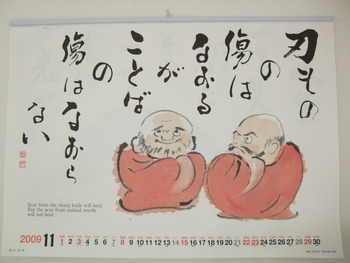 刃もの
の
傷は
なおる
が
ことば
の
傷はなおら
ない
Scar from the sharp knife will heal.
But the scar from unkind words
will not heal.
2009 11 1 2 3 4 5 6 7 8 9 10 11 12 13 14 15 16 17 18 19 20 21 22 23 24 25 26 27 28 29 30